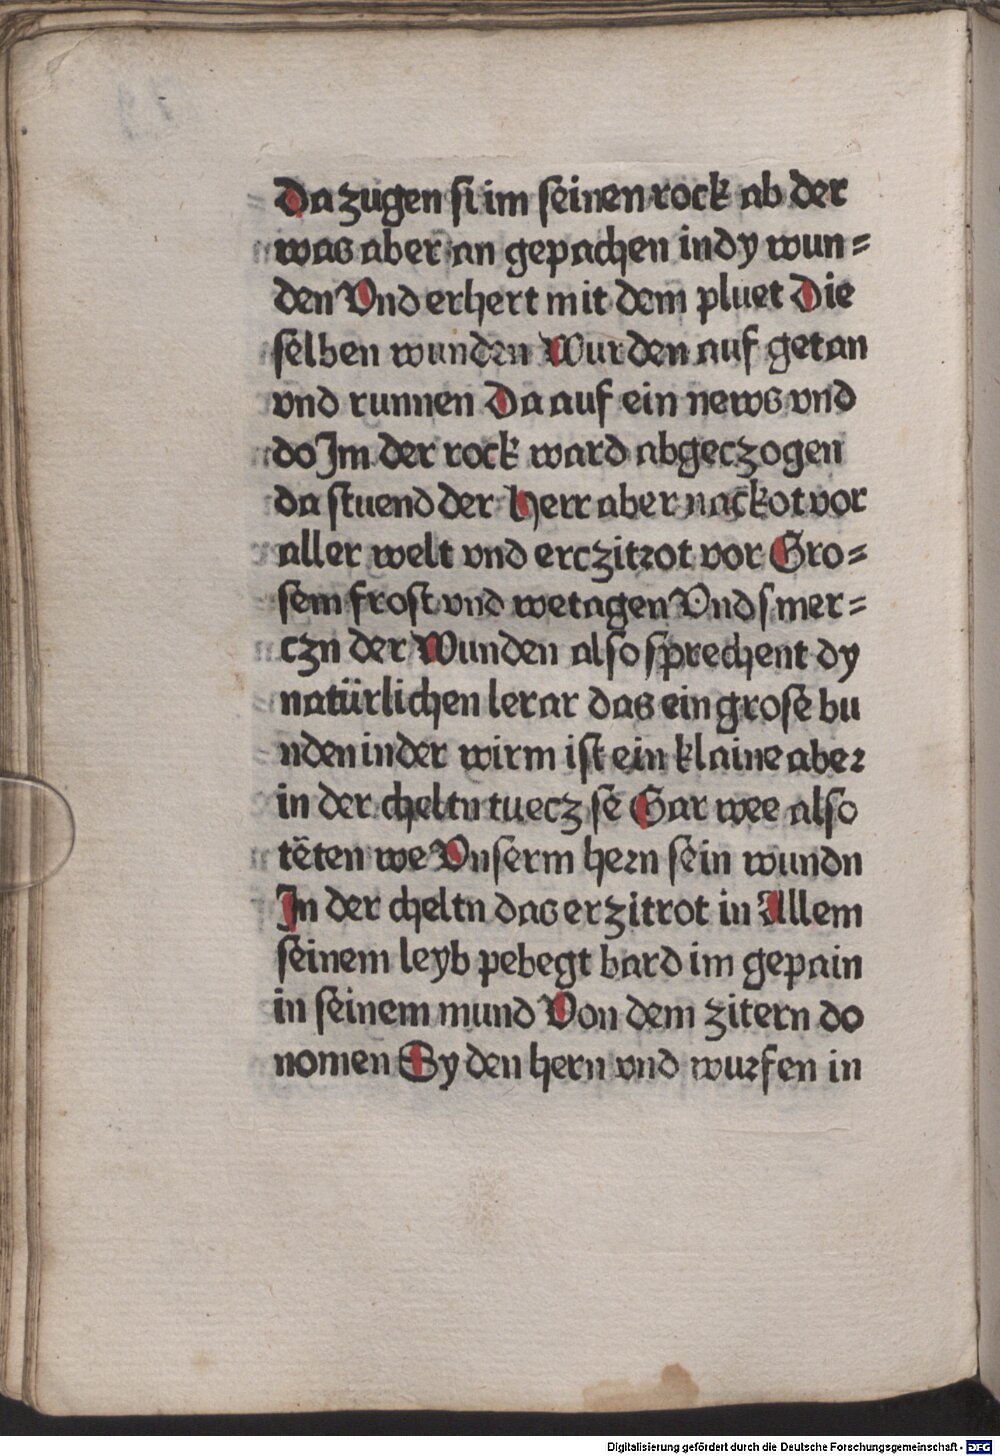 Da zugen si im seinen rock ab der
was aber an gepachen in dy wun=
den Vnd erhert mit dem pluet Die
selben wunden Wurden auf getan
vnd runnen Da auf ein news vnd
do Im der rock ward abgeczogen
da stuend der Herr aber nackot vor
aller welt vnd erczitrot vor Gro=
sem frost vnd wetagen Vnd smer=
czn der Wunden also sprechent dy
natürlichen lerar das ein grose bu
nden in der wirm ist ein klaine aber
in der cheltn tuecz se Gar wee also
tëten we Vnserm hern sein wundn
In der cheltn das er zitrot in Allem
seinem leyb pebegt bard im gepain
in seinem mund Von dem zitern do
nomen Sy den hern vnd wurfen in
Digitalisierung gefördert durch die Deutsche Forschungsgemeinschaft - DFG